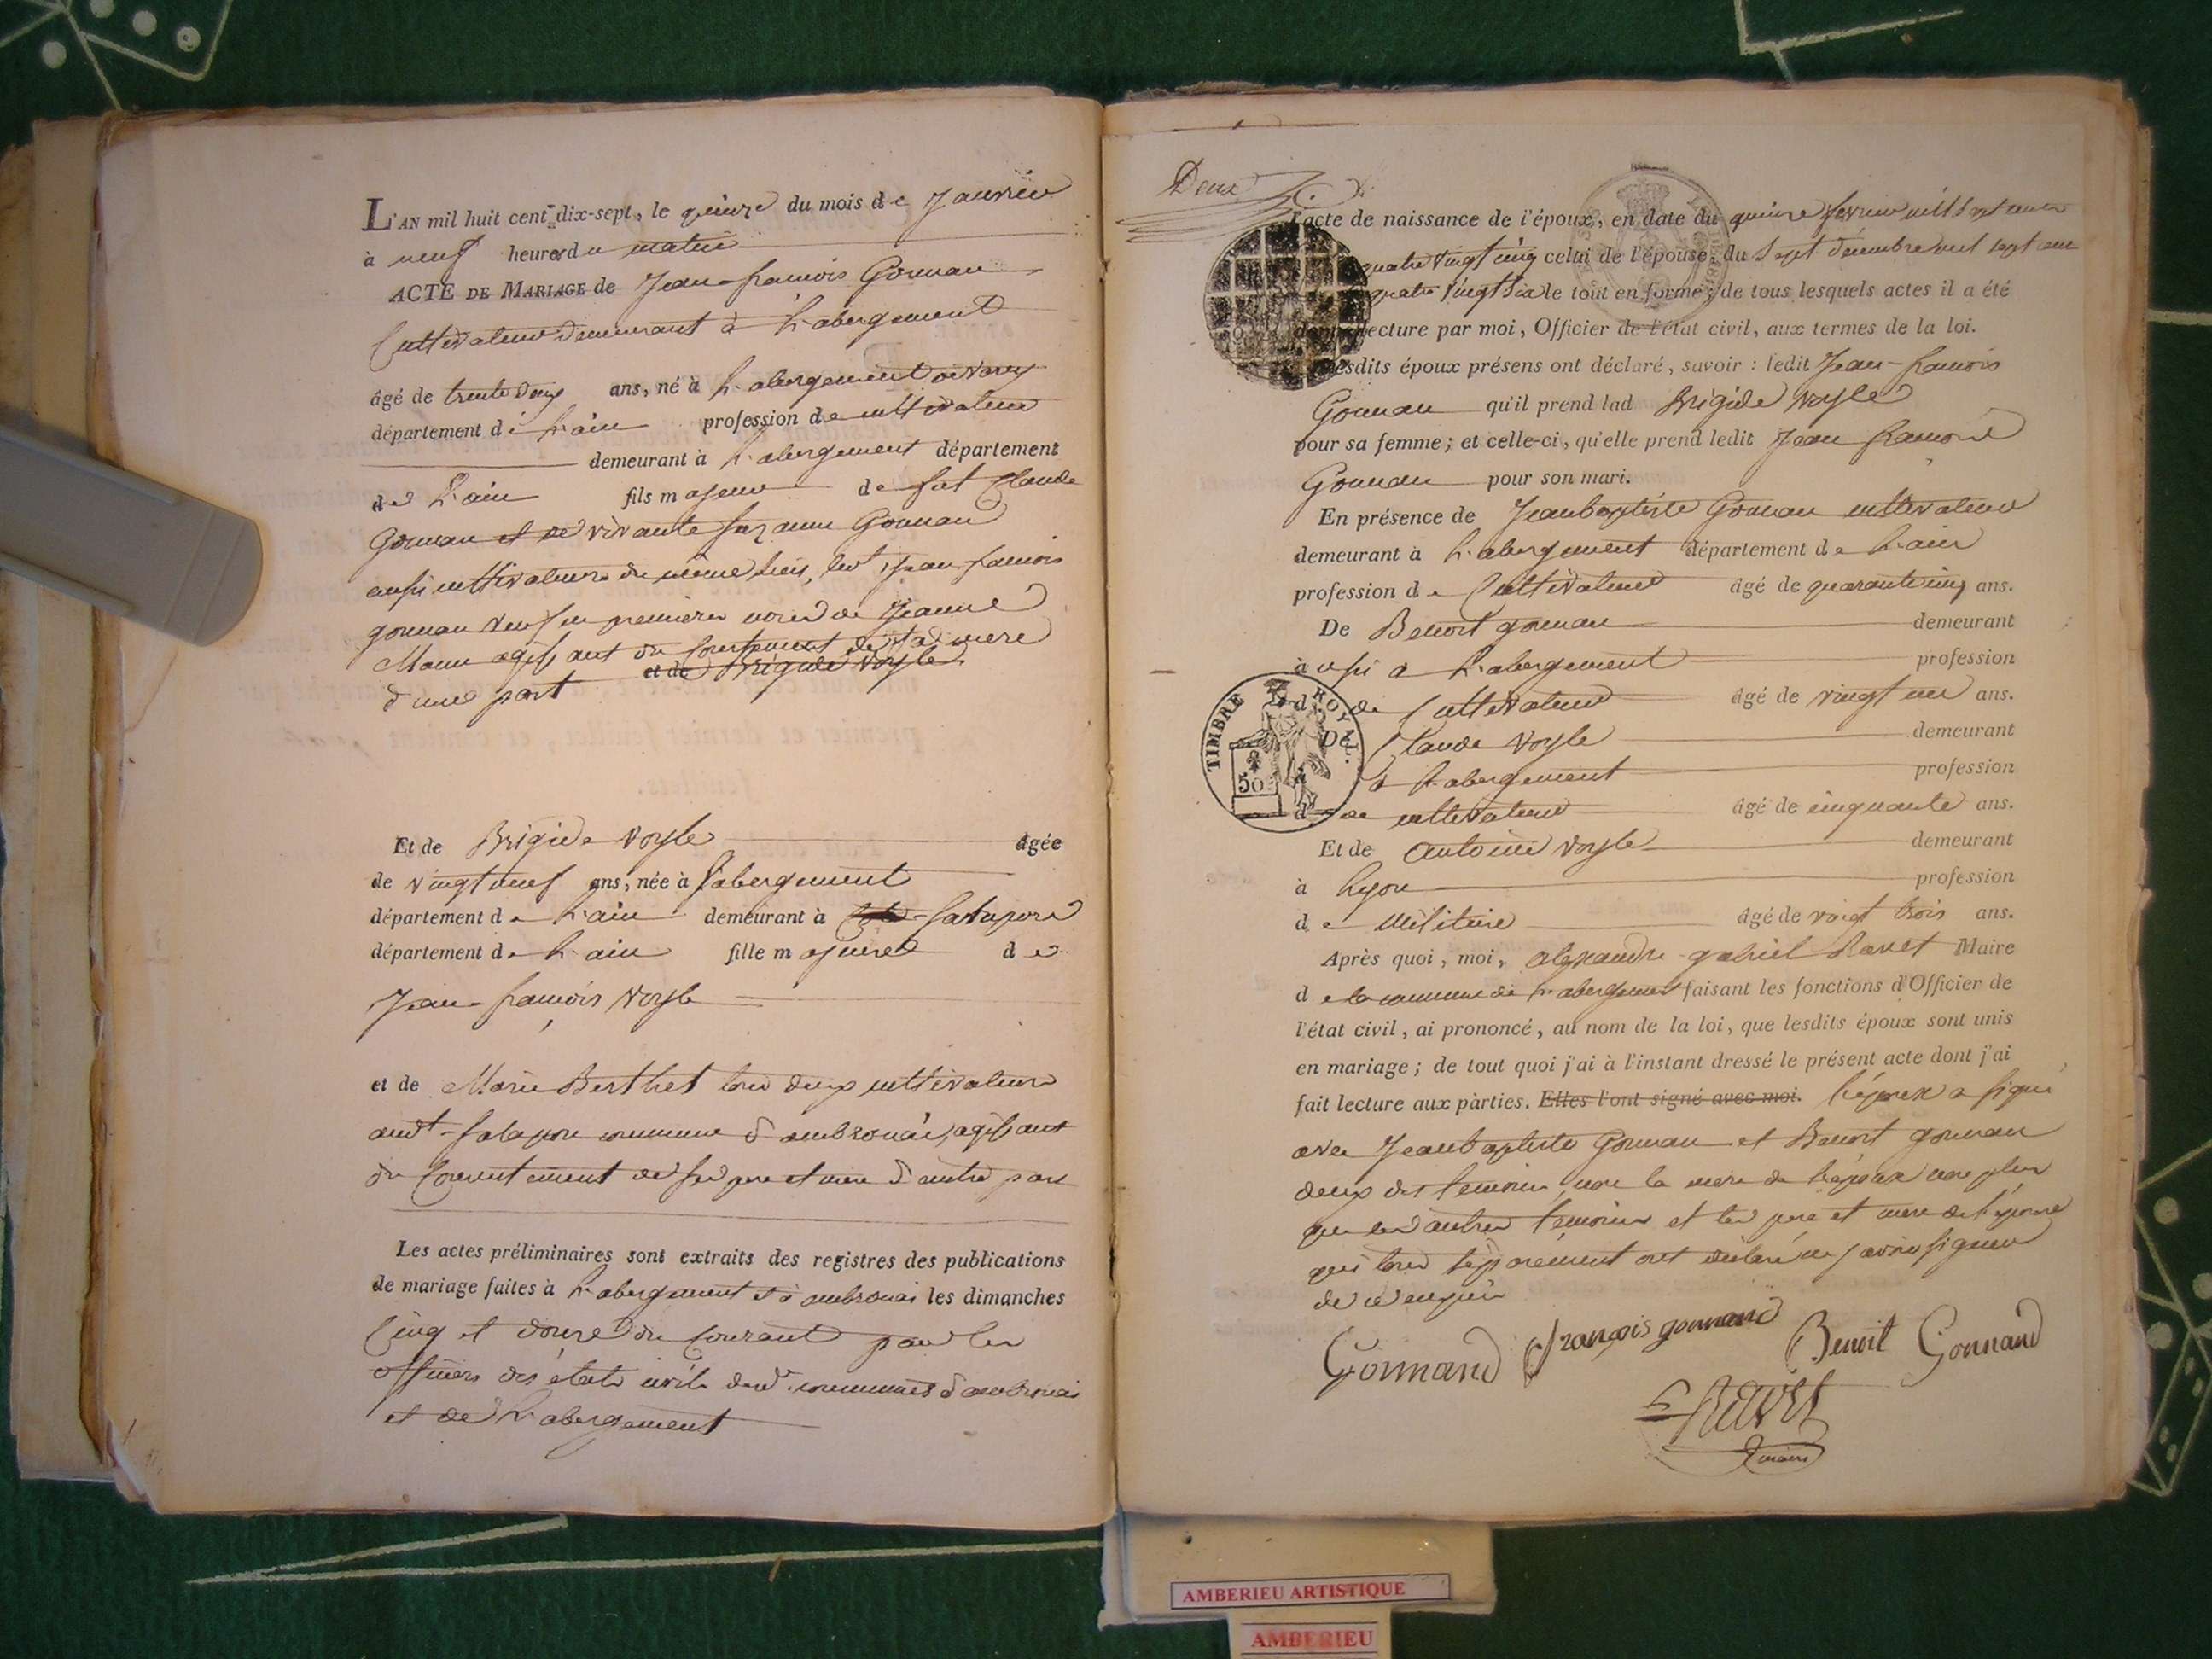 L'AN mil huit cent dix-sept, le quinze du mois de Janvier
à neuf heures du matin
ACTE DE MARIAGE de Jean-françois Gonnan
Cultivateur demeurant à L'abergement
âgé de trente deux ans, né à L'abergement de Varey
département de L'ain profession de cultivateur
demeurant à L'abergement département
de L'ain fils majeur de fut Claude
Gonnan et de vivante Suzanne Gonnan
aussi cultivateurs du même lieu, led. Jean françois
gonnan veuf en premieres noces de Jeanne
agissant du Consentement de sad. mere
et de Brigide Voyle
d'une part
Et de Brigide Voyle âgée
de vingt neuf ans, née à L'abergement
département de L'ain demeurant à Salapore
département de L'ain fille majeure de
Jean-françois Voyle
et de Marie Berthet tous deux cultivateurs
aud.t Salapore commune d'ambronai, agissant
du Consentement de ses pere et mere d'autre part
Les actes préliminaires sont extraits des registres des publications
de mariage faites à L'abergement et à ambronai les dimanches
Cinq et douze du Courant par les
officiers des états civils desd. communes d'ambronai
et de L'abergement
Deux
l'acte de naissance de l'époux, en date du quinze fevrier mill sept cent
quatre vingt cinq celui de l'épouse, du Sept decembre mil sept cent
quatre vingt le tout en forme; de tous lesquels actes il a été
donné lecture par moi, Officier de l'état civil, aux termes de la loi.
Lesdits époux présens ont déclaré, savoir : ledit Jean-françois
Gonnan qu'il prend lad Brigide Voyle
pour sa femme; et celle-ci, qu'elle prend ledit Jean françois
Gonnan pour son mari.
En présence de Jean baptiste Gonnan cultivateur
demeurant à L'abergement département de L'ain
profession de Cultivateur âgé de quarante cinq ans.
De Benoit gonnan demeurant
aussi a L'abergement profession
de Cultivateur âgé de vingt un ans.
De Claude Voyle demeurant
à L'abergement profession
de cultivateur âgé de cinquante ans.
TIMBRE ROYAL.
50
Et de antoine Voyle demeurant
à Lyon profession
de Militaire âgé de vingt trois ans.
Après quoi, moi, alexandre gabriel Ravet Maire
de la commune de L'abergement faisant les fonctions d'Officier de
l'état civil, ai prononcé, au nom de la loi, que lesdits époux sont unis
en mariage; de tout quoi j'ai à l'instant dressé le présent acte dont j'ai
fait lecture aux parties. Elles l'ont signé avec moi. L'époux a signé
avec Jean baptiste Gonnan et Benoit gonnan
deux des temoins, non la mere de l'époux non plus
que les autres temoins et les pere et mere de l'épouse
qui tous séparément ont déclaré ne savoir signer
de ce enquis
Gonnand françois gonnand Benoit Gonnand
Ravet
maire
AMBERIEU ARTISTIQUE
AMBERIEU